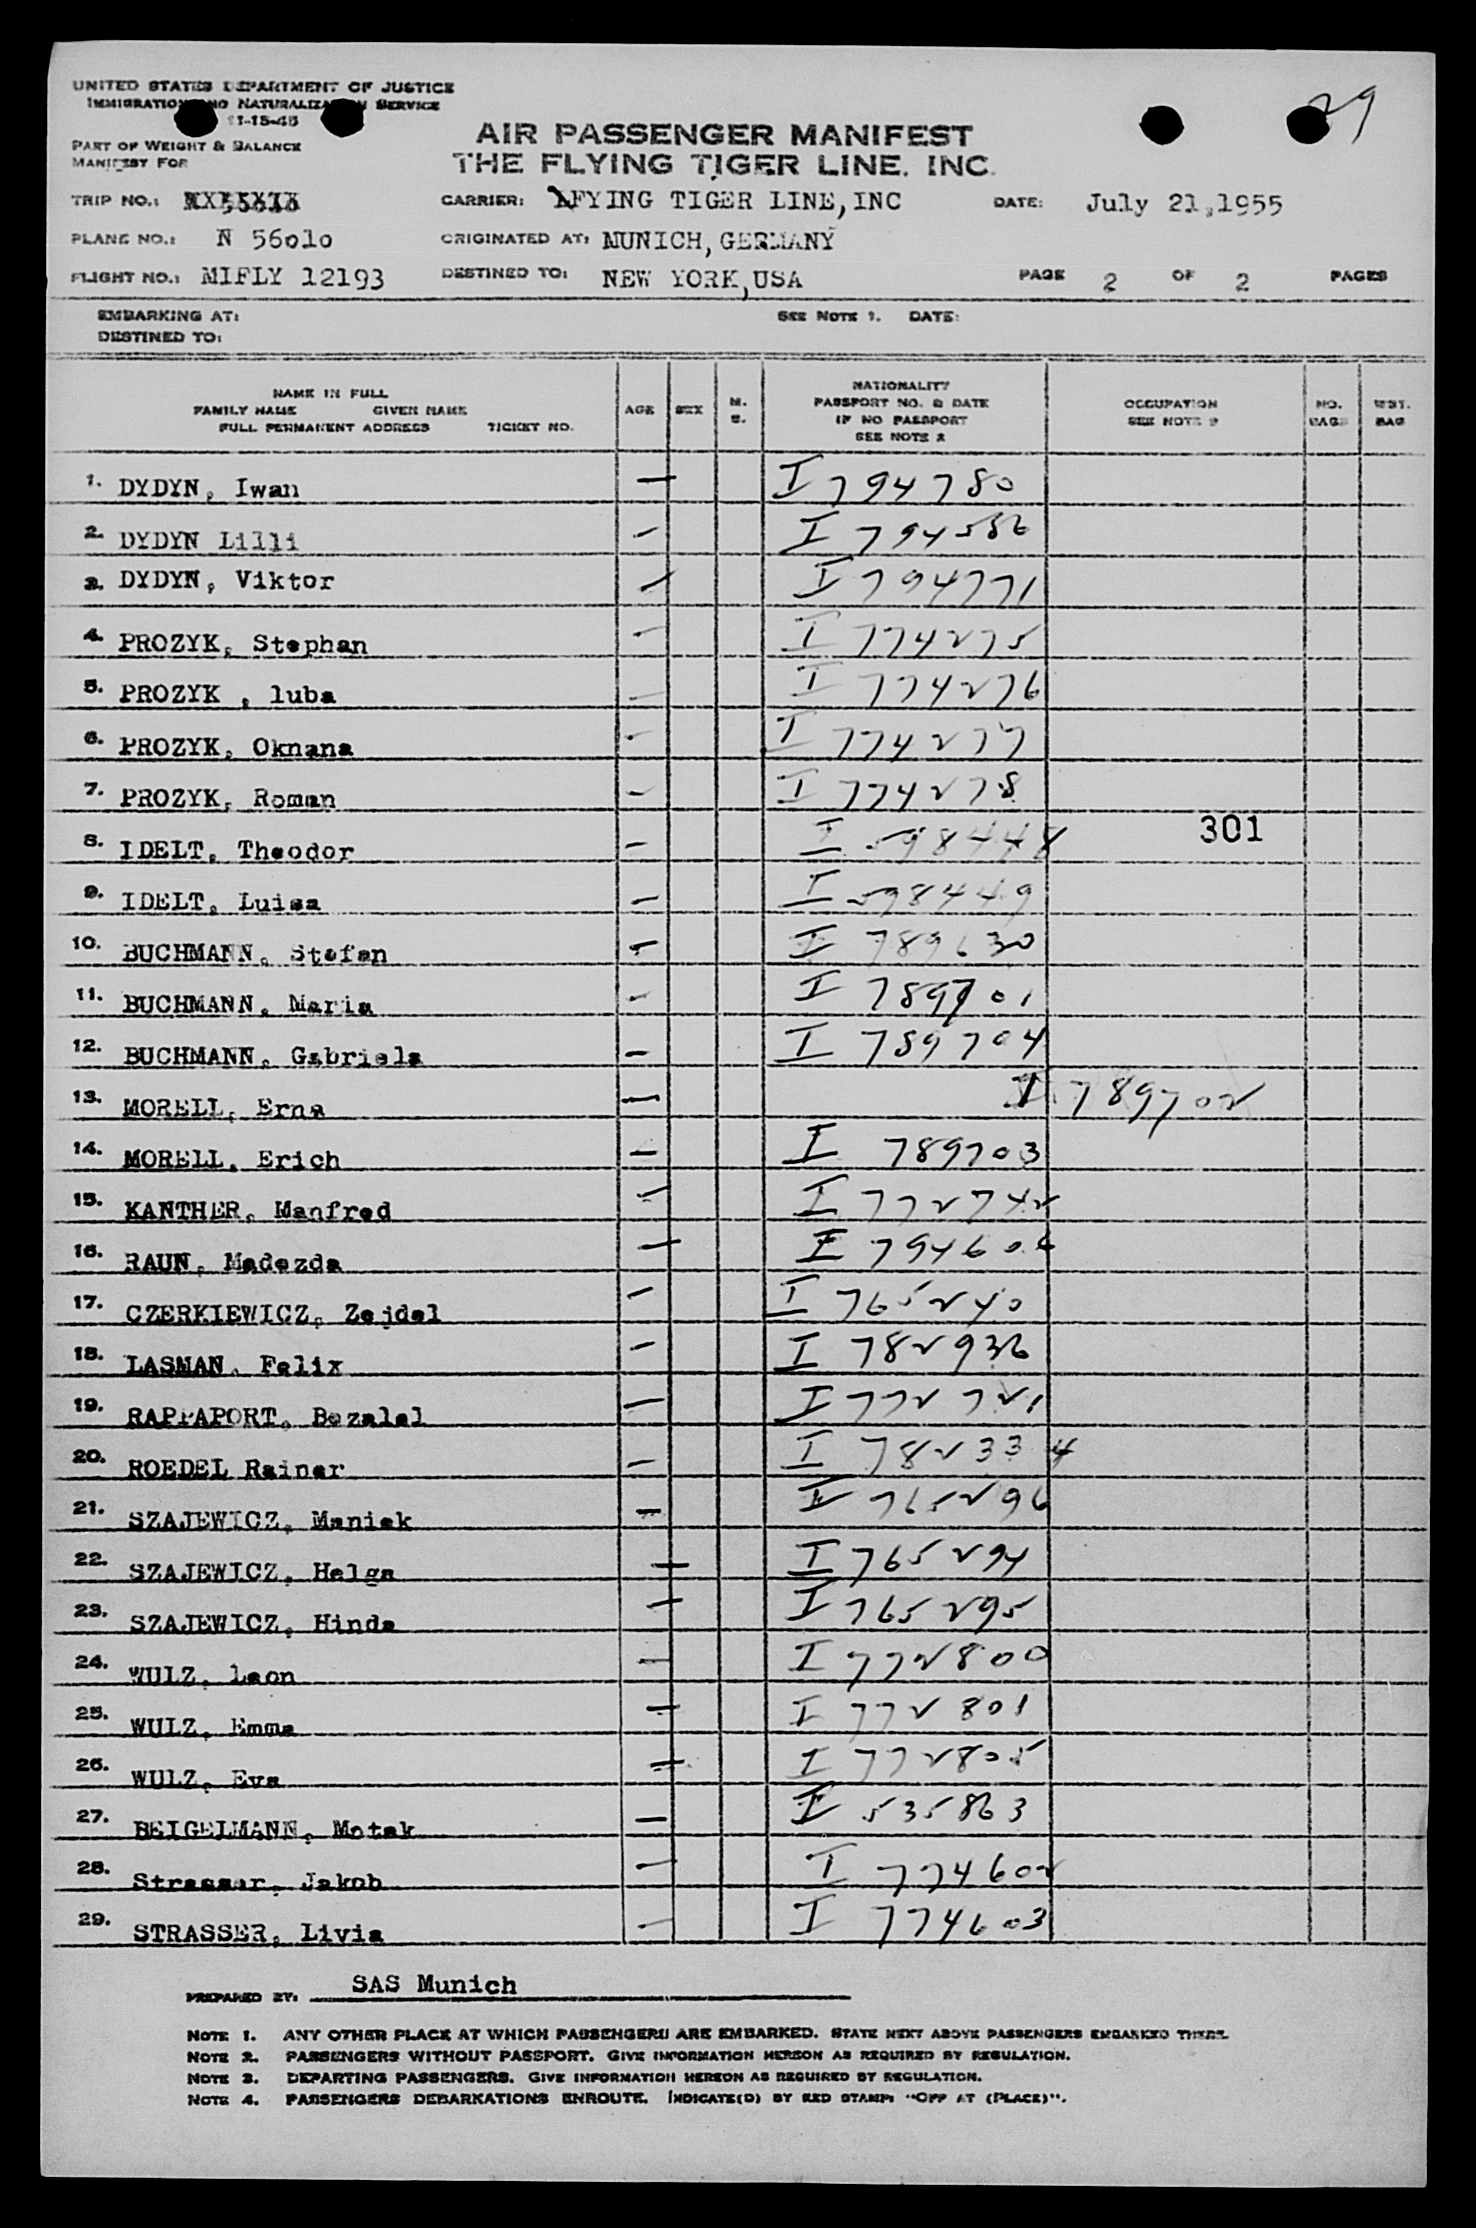 UNITED STATES DEPARTMENT OF JUSTICE
IMMIGRATION AND NATURALIZATION SERVICE
11-15-45
29
PART OF WEIGHT & BALANCE
MANIFEST FOR
AIR PASSENGER MANIFEST
THE FLYING TIGER LINE, INC.
TRIP NO.: CARRIER: FYING TIGER LINE,INC DATE: July 21,1955
PLANE NO.: N 56olo ORIGINATED AT: MUNICH, GERMANY
FLIGHT NO.: MIFLY 12193 DESTINED TO: NEW YORK,USA PAGE 2 OF 2 PAGES
EMBARKING AT: SEE NOTE 1. DATE:
DESTINED TO:
NAME IN FULL
FAMILY NAME GIVEN NAME
FULL PERMANENT ADDRESS TICKET NO.
AGE SEX M. S.
NATIONALITY
PASSPORT NO. & DATE
IF NO PASSPORT
SEE NOTE 2
OCCUPATION
SEE NOTE
NO. BAGS WGT. BAG
1. DYDYN, Iwan — I 794780
2. DYDYN Lilli — I 794586
3. DYDYN, Viktor — I 794771
4. PROZYK, Stephan — I 774275
5. PROZYK , luba — I 774276
6. PROZYK, Oknana — I 774277
7. PROZYK, Roman — I 774278
301
8. IDELT, Theodor — I 598448
9. IDELT, Luisa — I 598449
10. BUCHMANN, Stefan — I 789630
11. BUCHMANN, Maria — I 789701
12. BUCHMANN, Gabriela — I 789704
13. MORELL, Erna — I 789702
14. MORELL, Erich — I 789703
15. KANTHER, Manfred — I 772742
16. RAUN, Madezda — I 794606
17. CZERKIEWICZ, Zejdel — I 765240
18. LASMAN, Felix — I 782936
19. RAPPAPORT, Bezalel — I 772721
20. ROEDEL Rainer — I 782334
21. SZAJEWICZ, Maniek — I 765296
22. SZAJEWICZ, Helga — I 765294
23. SZAJEWICZ, Hinda — I 765295
24. WULZ, Leon — I 772800
25. WULZ, Emma — I 772801
26. WULZ, Eva — I 772805
27. BEIGELMANN, Motek — I 535863
28. Strasser, Jakob — I 774602
29. STRASSER, Livia — I 774603
PREPARED BY: SAS Munich
NOTE 1. ANY OTHER PLACE AT WHICH PASSENGERS ARE EMBARKED. STATE NEXT ABOVE PASSENGERS EMBARKED THERE.
NOTE 2. PASSENGERS WITHOUT PASSPORT. GIVE INFORMATION HEREON AS REQUIRED BY REGULATION.
NOTE 3. DEPARTING PASSENGERS. GIVE INFORMATION HEREON AS REQUIRED BY REGULATION.
NOTE 4. PASSENGERS DEBARKATIONS ENROUTE. INDICATE(D) BY RED STAMP: "OFF AT (PLACE)".